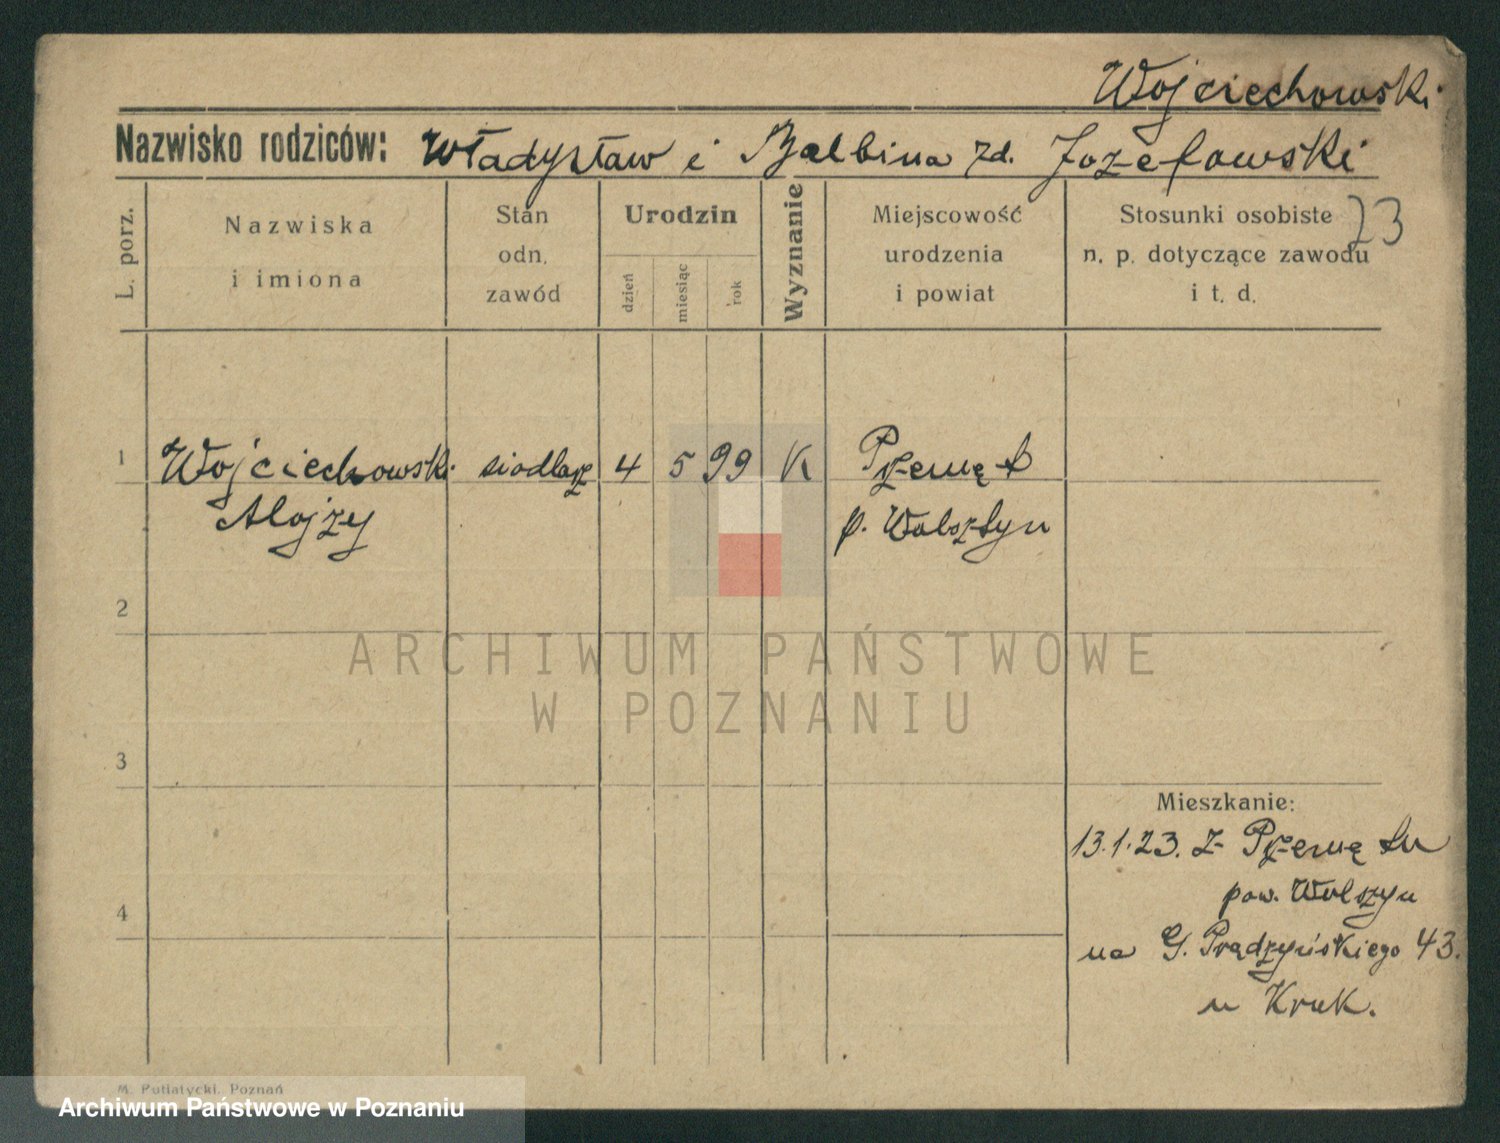 Wojciechowski
Nazwisko rodziców: Władysław i Balbina zd. Jozefowski
L. porz.
Nazwiska
i imiona
Stan
odn.
zawód
Urodzin
dzień
miesiąc
rok
Wyznanie
Miejscowość
urodzenia
i powiat
Stosunki osobiste
n. p. dotyczące zawodu
i t. d.
23
1 Wojciechowski siodlarz 4 5 99 K Przemęt
Alojzy p. Wolsztyn
2
ARCHIWUM PAŃSTWOWE
W POZNANIU
3
Mieszkanie:
13.1.23. z Przemętu
pow. Wolszyn
4
na G. Prądzyńskiego 43.
u Kruk.
M. Putiatycki, Poznań
Archiwum Państwowe w Poznaniu